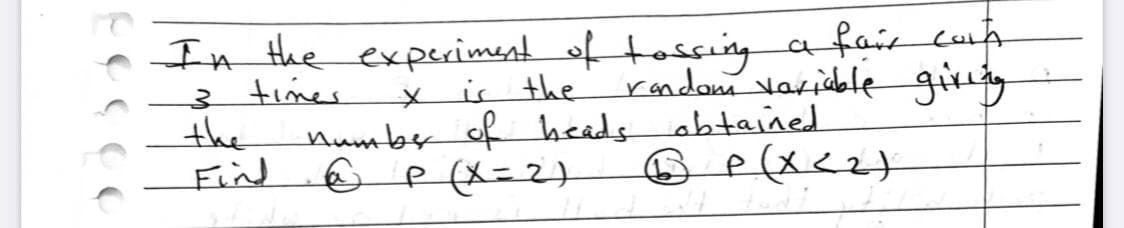 In the experiment of tossing a fair coin
3 times X is the random variable giving
the number of heads obtained
Find (a) P (X = 2) (b) P (X < 2)